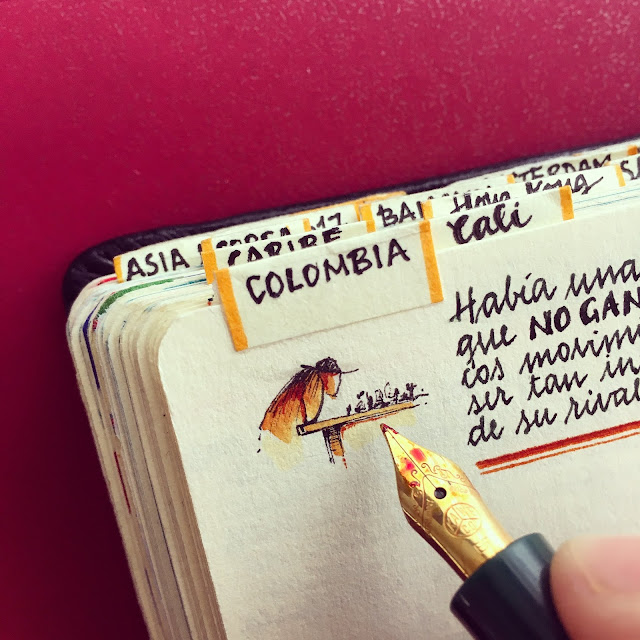 TERDAM
Hong Kong
ASIA
CARIBE
Cali
COLOMBIA
Había una
que NO GAN
cos movim
ser tan in
de su rival